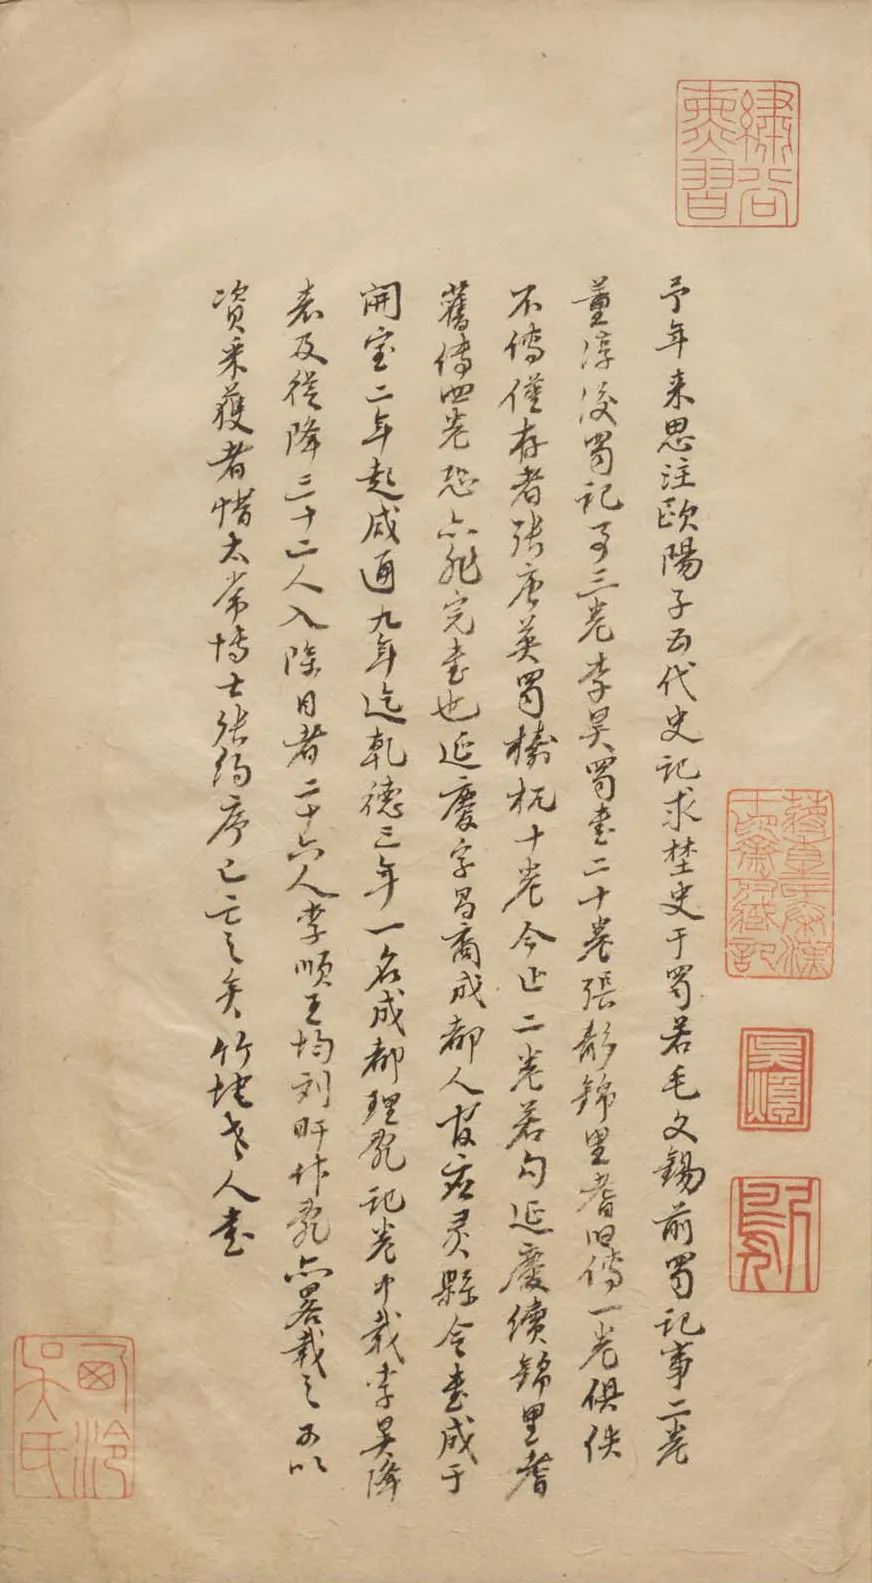 予年来思注歐陽子五代史記求埜史于蜀若毛文錫前蜀記事二卷
董淳後蜀記事三卷李昊蜀書二十卷張彰錦里耆旧傳一卷俱佚
不傳僅存者張唐英蜀檮杌十卷今止二卷若勾延慶續錦里耆
舊傳四卷恐亦非完書也延慶字昌裔成都人官应灵縣令書成于
開宝二年起咸通九年迄乾德三年一名成都理乱記卷中載李昊降
表及從降三十二人入除目者二十六人李順王均刘旰作乱亦畧載之可以
資采獲者惜太常博士張約序已亡之矣竹垞老人書
繡谷熏習
吳焯
西泠吳氏